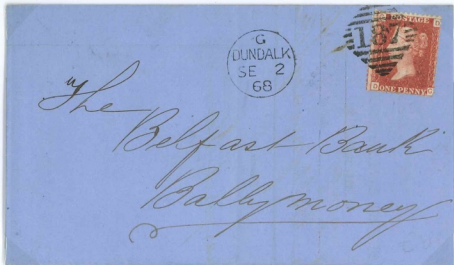 G
DUNDALK
SE 2
68
POSTAGE
187
ONE PENNY
The
Belfast Bank
Ballymoney